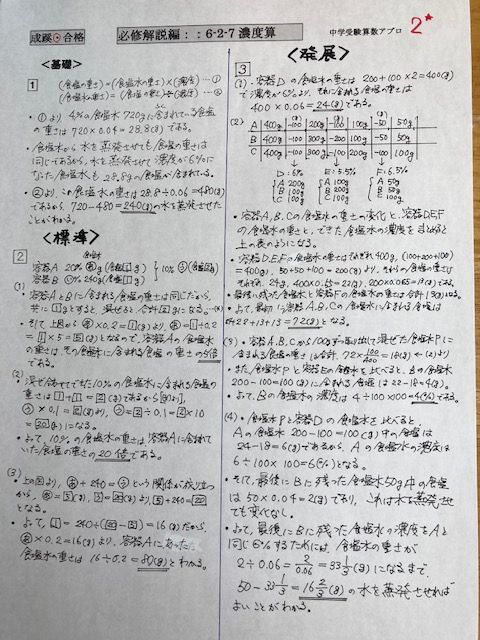 成蹊◎合格
必修解説編：：6-2-7 濃度算
中学受験算数アプロ
2*
<基礎>
1
(食塩の重さ)=(食塩水の重さ)×(濃度) …①
(食塩水の重さ)=(食塩の重さ)÷(濃度) …②
・①より 4%の食塩水 720gに含まれている食塩
の重さは 720×0.04=28.8(g)である。
・食塩水から水を蒸発させても食塩の重さは
同じであるから、水を蒸発させて濃度が6%に
なった食塩水も28.8gの食塩が含まれている。
・②より、この食塩水の重さは28.8÷0.06=480(g)
であるから、720-480=240(g)の水を蒸発させた
ことがわかる。
<標準>
2
食塩水
容器A 20% (食塩1g)
容器B 240g (食塩1g)
10%
(1)
・容器AとBに含まれる食塩の重さは同じだから、
共に1gとすると、混ぜると合計2gになる。
そして、上図から ×0.2=1(g)より、 =1÷0.2
=1×5=5(g)となるので、容器Aの食塩水
の重さは、その食塩水に含まれる食塩の重さの5倍
である。
(2)
・混ぜ合わせてできた10%の食塩水に含まれる食塩の量
の重さは1+1=2(g)であるから
×0.1=2(g)より、 =2÷0.1=2×10
=20(g)になる。
・よって、10%の食塩水の重さは容器Aに含まれて
いた食塩の重さの20倍である。
(3)
・上の図より、 +240= という関係が成り立つ
から、 =5(g)、 =20(g)より、5+240=20
となる。
・よって、1=240÷(20-5)=16(g)だから、
×0.2=16(g)より、容器Aにあった
食塩水の重さは 16÷0.2=80(g)とわかる。
<発展>
3
(1)・容器Dの食塩水の重さは 200+100×2=400(g)
で濃度が6%より、それに含まれる食塩の重さは
400×0.06=24(g)である。
(2)
A 400g -100 300g -200 100g -50 50g
B 400g -100 300g -200 100g -50 50g
C 400g -100 300g -100 200g -100 100g
D:6% E:5.5% F:6.5%
A 200g A 100g A 50g
B 100g B 200g B 50g
C 100g C 100g C 100g
・容器A,B,Cの食塩水の重さの変化と、容器D,E,F
の食塩水の重さと、できた食塩水の濃度をまとめると
上の表のようになる。
・容器D,E,Fの食塩水の重さはそれぞれ400g, (100+200+100)
=400(g), 50+50+100=200(g)より、それらの食塩の重さは
それぞれ、24g, 400×0.055=22(g), 200×0.065=13(g)である。
・最後に残った食塩水と容器Fの食塩水の重さは合計13(g)になる。
・よって、最初に容器A,B,Cの食塩水に含まれる食塩は
24+22+13+13=72(g)となる。
(3)・容器A,B,Cから100gずつ取り出して混ぜた食塩水Pに
含まれる食塩の重さは合計、72×100/400=18(g) ←(2)より
・また、食塩水Pと容器Eの食塩水を比べると、Bの食塩水
200-100=100(g)に含まれる食塩は22-18=4(g)。
・よって、Bの食塩水の濃度は4÷100×100=4(%)である。
(4)・食塩水Pと容器Dの食塩水を比べると、
Aの食塩水 200-100=100(g)中の食塩は
24-18=6(g)であるから、Aの食塩水の濃度は
6÷100×100=6(%)となる。
・そして、最後にBに残った食塩水50g中の食塩
は50×0.04=2(g)であり、これは水を蒸発させ
ても変化なし。
・よって、最後にBに残った食塩水の濃度をAと
同じ6%するためには、食塩水の重さが
2÷0.06=2/0.06=33 1/3(g)になるまで、
50-33 1/3=16 2/3(g)の水を蒸発させれば
よいことがわかる。